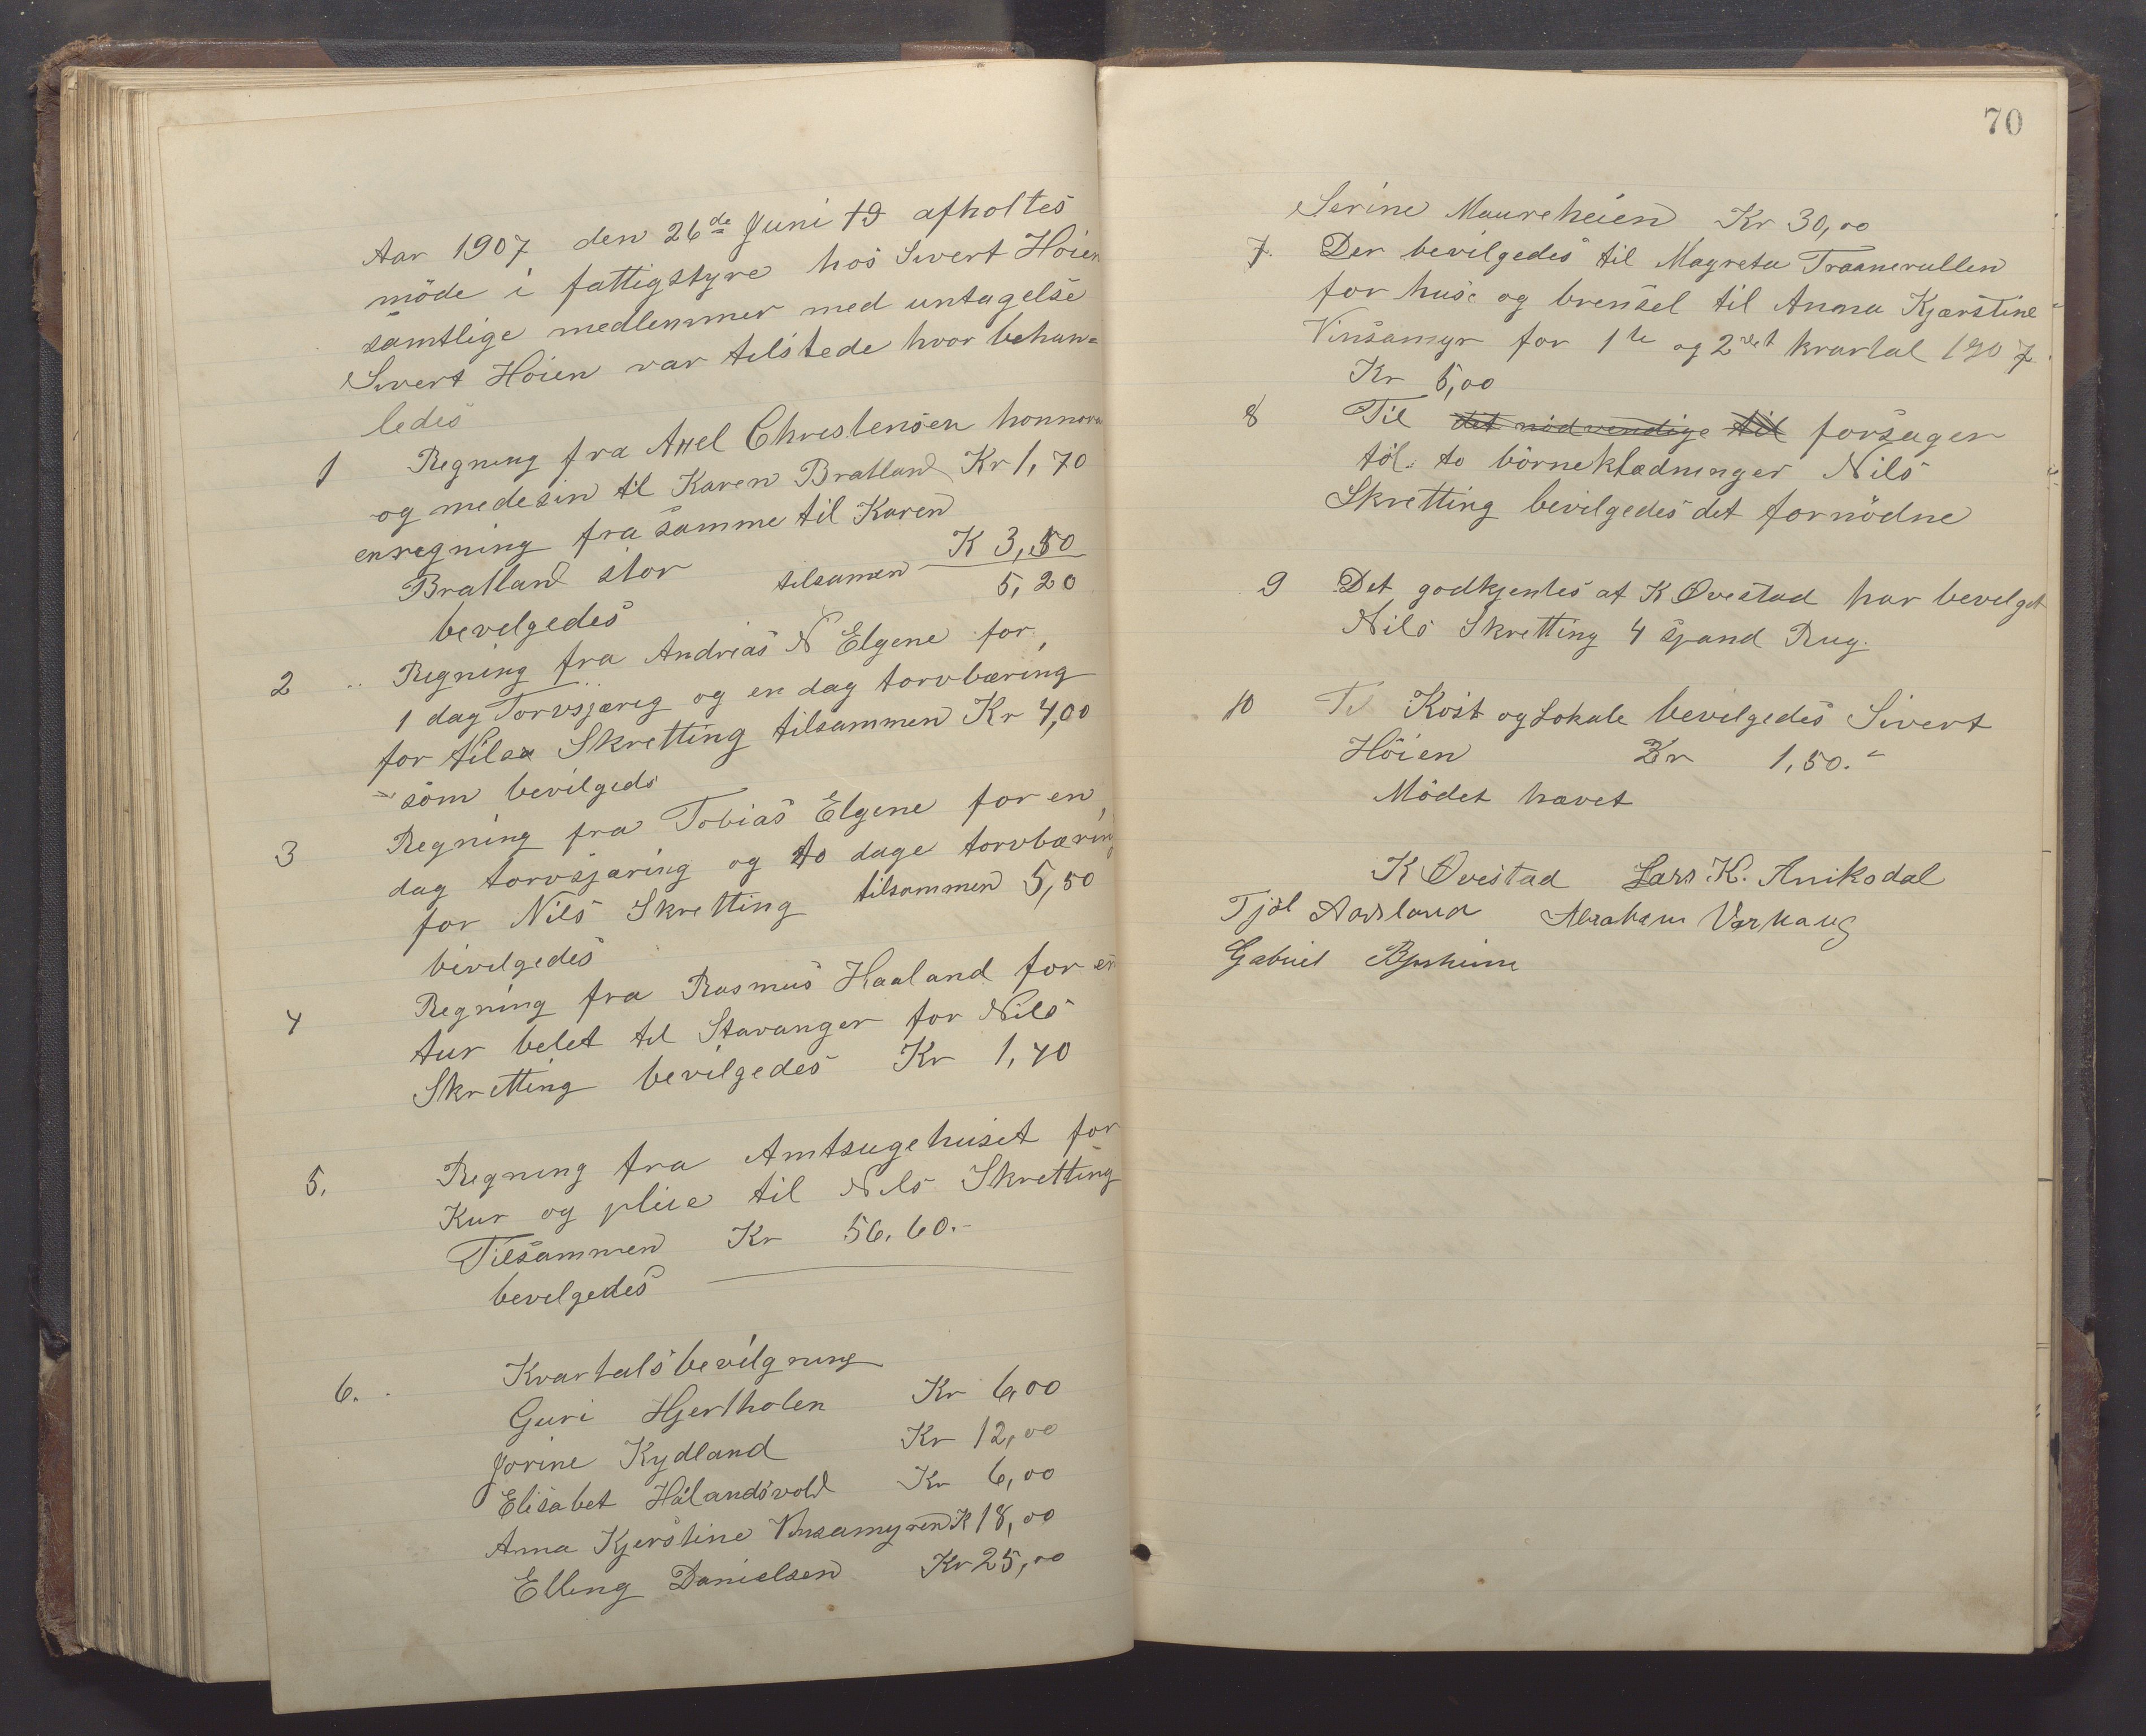 Aar 1907 den 26de Juni ıɔ afholtes
möde i fattigstyre hos Sivert Höien
samtlige medlemmer med untagelse
Sivert Höien var tilstede hvor behan=
ledes
1 Regning fra Axel Christensen honnorar
og medesin til Karen Bratland Kr 1,70
en regning fra samme til Karen
Bratland stor K 3,50
tilsamen 5,20
bevelgedes
2 Regning fra Andreas N Elgene for
1 dag Torvsjæring og en dag torvbæring
for Nils Skretting tilsammen Kr 4,00
som bevilgeds
3 Regning fra Tobias Elgene for en
dag torvsjæring og to dage torvbæring
for Nils Skretting tilsammen 5,50
bevilgedes
4 Regning fra Rasmus Haaland for en
tur belet til Stavanger for Nils
Skretting bevilgedes Kr 1,40
5. Regning fra Amtsugehuset for
Kur og pleie til Nils Skretting
Tilsammen Kr 56,60.-
bevelgedes
6. Kvartalsbevilgning
Guri Hjertholen Kr 6,00
Jorine Kydland Kr 12,00
Elisabet Hålandsvold Kr 6,00
Anna Kjerstine Vinsamyren K 18,00
Elling Danielsen Kr 25,00
70
Serine Maureheien Kr 30,00
7. Der bevilgedes til Magreta Traanerullen
for huse og brensel til Anna Kjærstine
Vinsamyr for 1te og 2det kvartal 1907.
Kr 5,00
8 Til det nödvendige til forsager
töl to börneklædninger Nils
Skretting bevilgedes det fornödne
9 Det godkjentes at K Övestad har bevelget
Nils Skretting 4 spand Rug.
10 Til Kost og Lokale bevilgedes Sivert
Höien Kr 1,50.-
Mödet hævet
K Övestad Lars K. Aniksdal
Tjöl Aarsland Abraham Varhaug
Gabriel